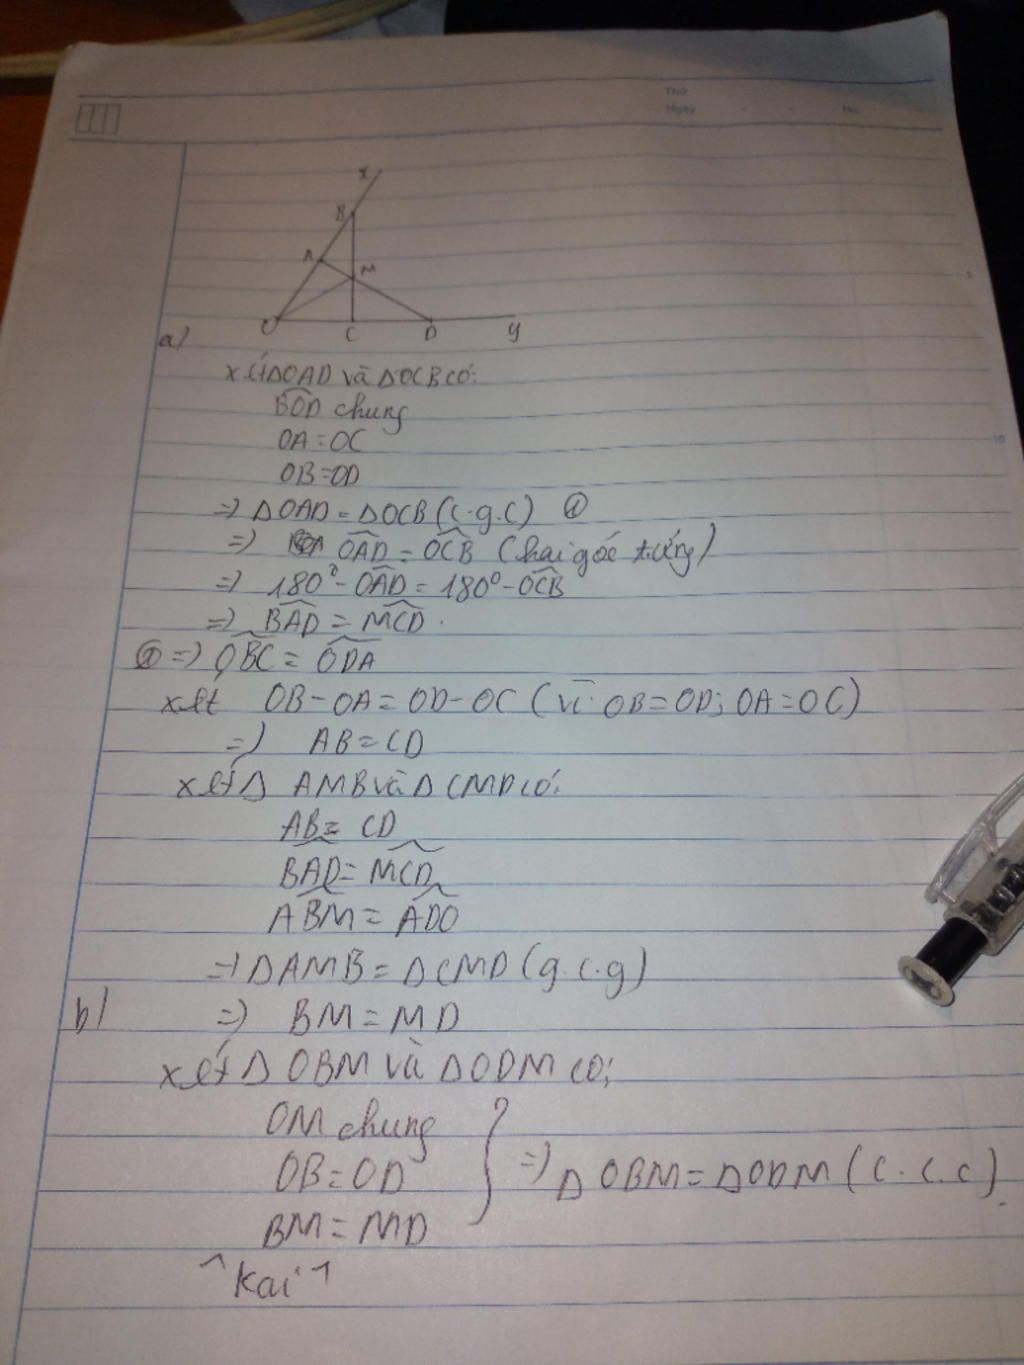 Thứ
Ngày
No.
x
B
A
M
O
C
D
y
5
a)
xét ΔOAD và ΔOCB có:
B̂OD chung
OA = OC
OB = OD
10
=> ΔOAD = ΔOCB (c.g.c) ①
=> OÂD = OĈB (hai góc t.ứng)
=> 180° - OÂD = 180° - OĈB
=> BÂD = MĈD.
① => OB̂C = OD̂A
xét OB - OA = OD - OC (vì OB = OD; OA = OC)
=> AB = CD
xét Δ AMB và Δ CMD có:
AB = CD
BÂD = MĈD
AB̂M = AD̂O
=> ΔAMB = ΔCMD (g.c.g)
b)
=> BM = MD
xét Δ OBM và ΔODM có:
OM chung
OB = OD
=> ΔOBM = ΔODM (c.c.c).
BM = MD
^Kai^